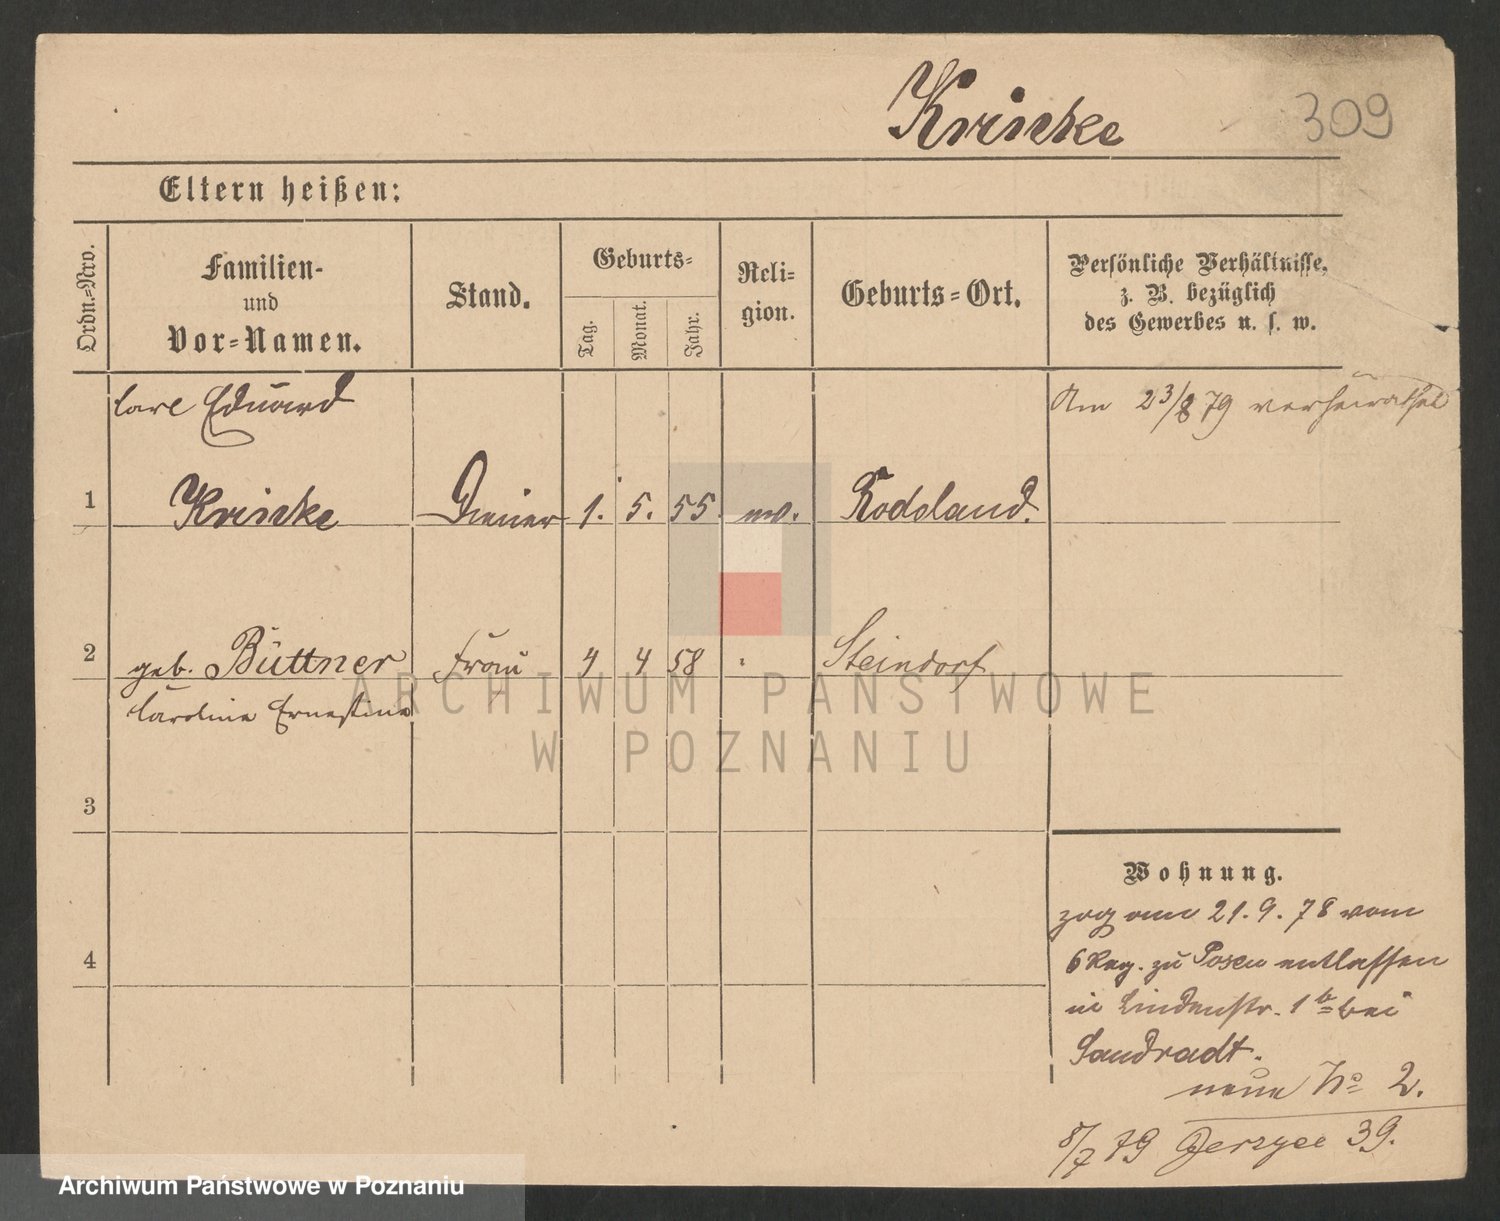 Krischke 309
Eltern heißen:
Ordn.=Nro.
Familien-
und
Vor=Namen.
Stand.
Geburts=
Tag.
Monat.
Jahr.
Reli=
gion.
Geburts=Ort.
Persönliche Verhältnisse,
z. B. bezüglich
des Gewerbes u. s. w.
Carl Eduard
Am 23/8 79 verheirathet
1 Krischke Diener 1. 5. 55. ev. Rodeland.
2 geb. Büttner Frau 4 4 58 Steindorf
Caroline Ernestine
3
4
Wohnung.
zog am 21.9.78 vom
6 Reg. zu Posen entlassen
in Lindenstr. 1b bei
Sandradt.
neue No 2.
8/7 79 Jerzyce 39.
ARCHIWUM PAŃSTWOWE
W POZNANIU
Archiwum Państwowe w Poznaniu